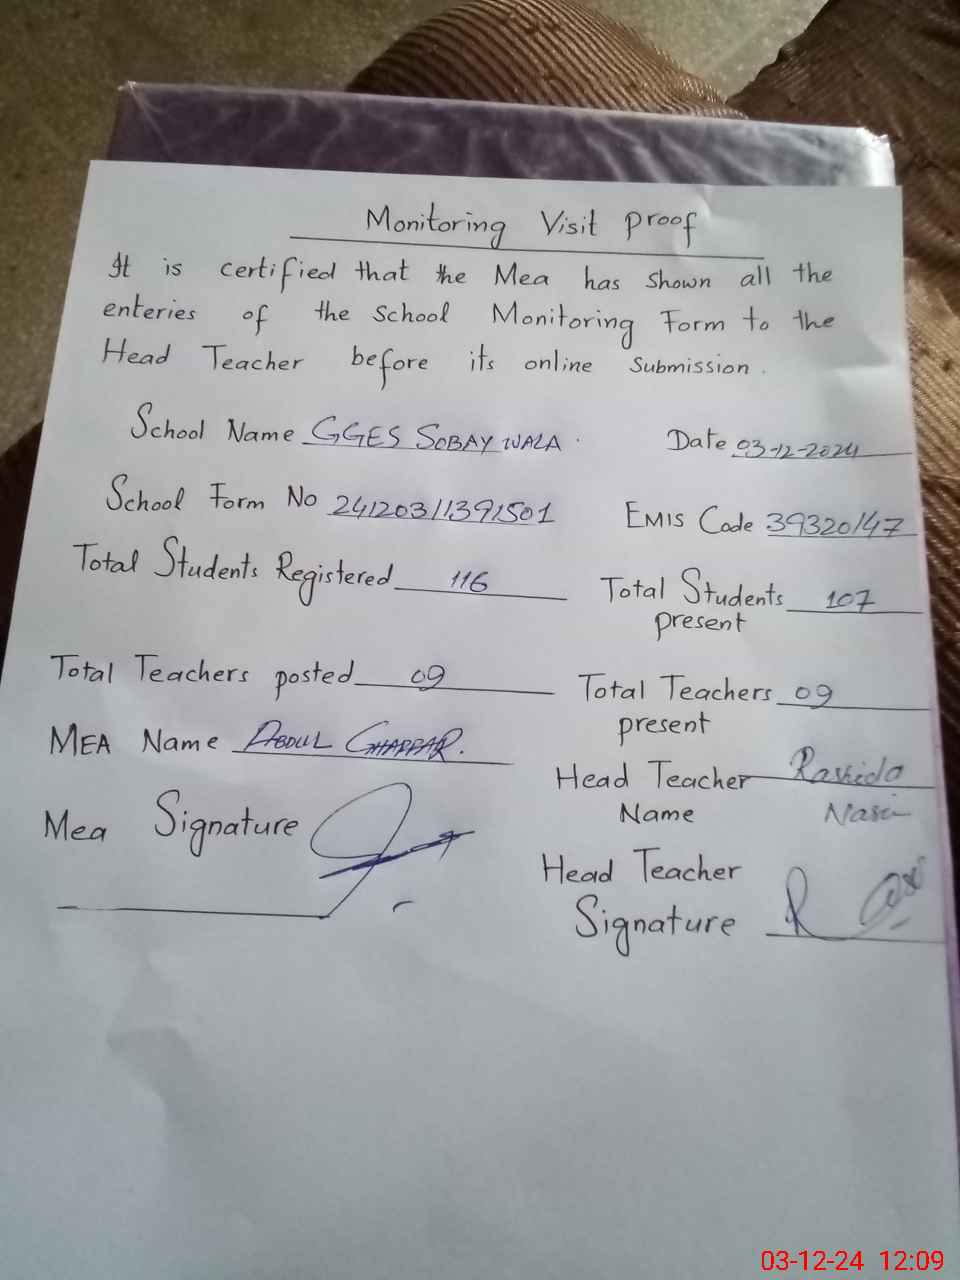 Monitoring Visit proof
It is certified that the Mea has shown all the
enteries of the School Monitoring Form to the
Head Teacher before its online Submission.
School Name GGES SOBAY WALA. Date 03-12-2024
School Form No 24120311391501 EMIS Code 39320147
Total Students Registered 116 Total Students present 107
Total Teachers posted 09 Total Teachers present 09
MEA Name ABDUL GHAFFAR. Head Teacher Name Rashida
Mea Signature
Head Teacher Signature
03-12-24 12:09